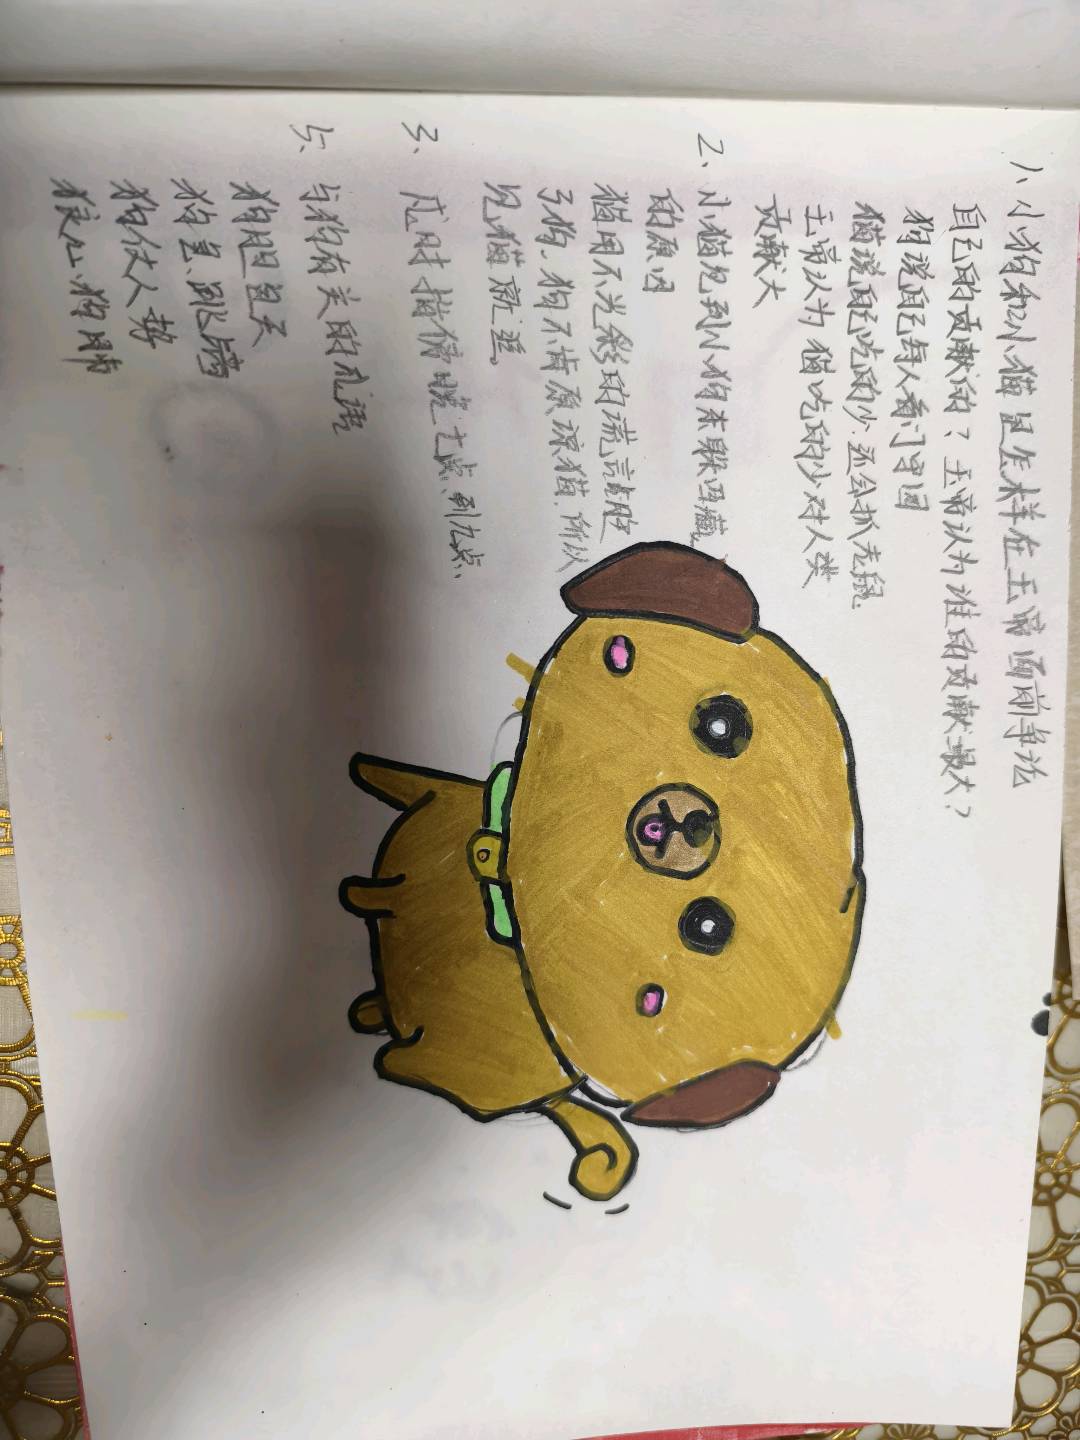 1、小狗和小猫是怎样在玉帝面前争论
自己的贡献的？玉帝认为谁的贡献最大？
狗说自己每人看门守园
猫说自己吃的少.还会抓老鼠
玉帝认为猫吃的少对人类
贡献大
2、小猫见到小狗东躲西藏
的原因
猫用不光彩的谎言战胜
了狗、狗不肯原谅猫.所以
见猫就追
3、戌时指傍晚七点到九点.
5、与狗有关的
狗
狗急跳墙
狗仗人势
狗